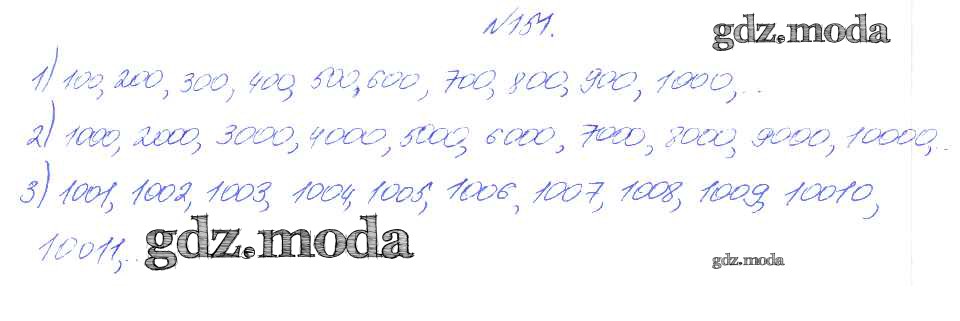 №151.
gdz.moda
1) 100, 200, 300, 400, 500, 600, 700, 800, 900, 1000,..
2) 1000, 2000, 3000, 4000, 5000, 6000, 7000, 8000, 9000, 10000,..
3) 1001, 1002, 1003, 1004, 1005, 1006, 1007, 1008, 1009, 10010,
10011,..
gdz.moda
gdz.moda